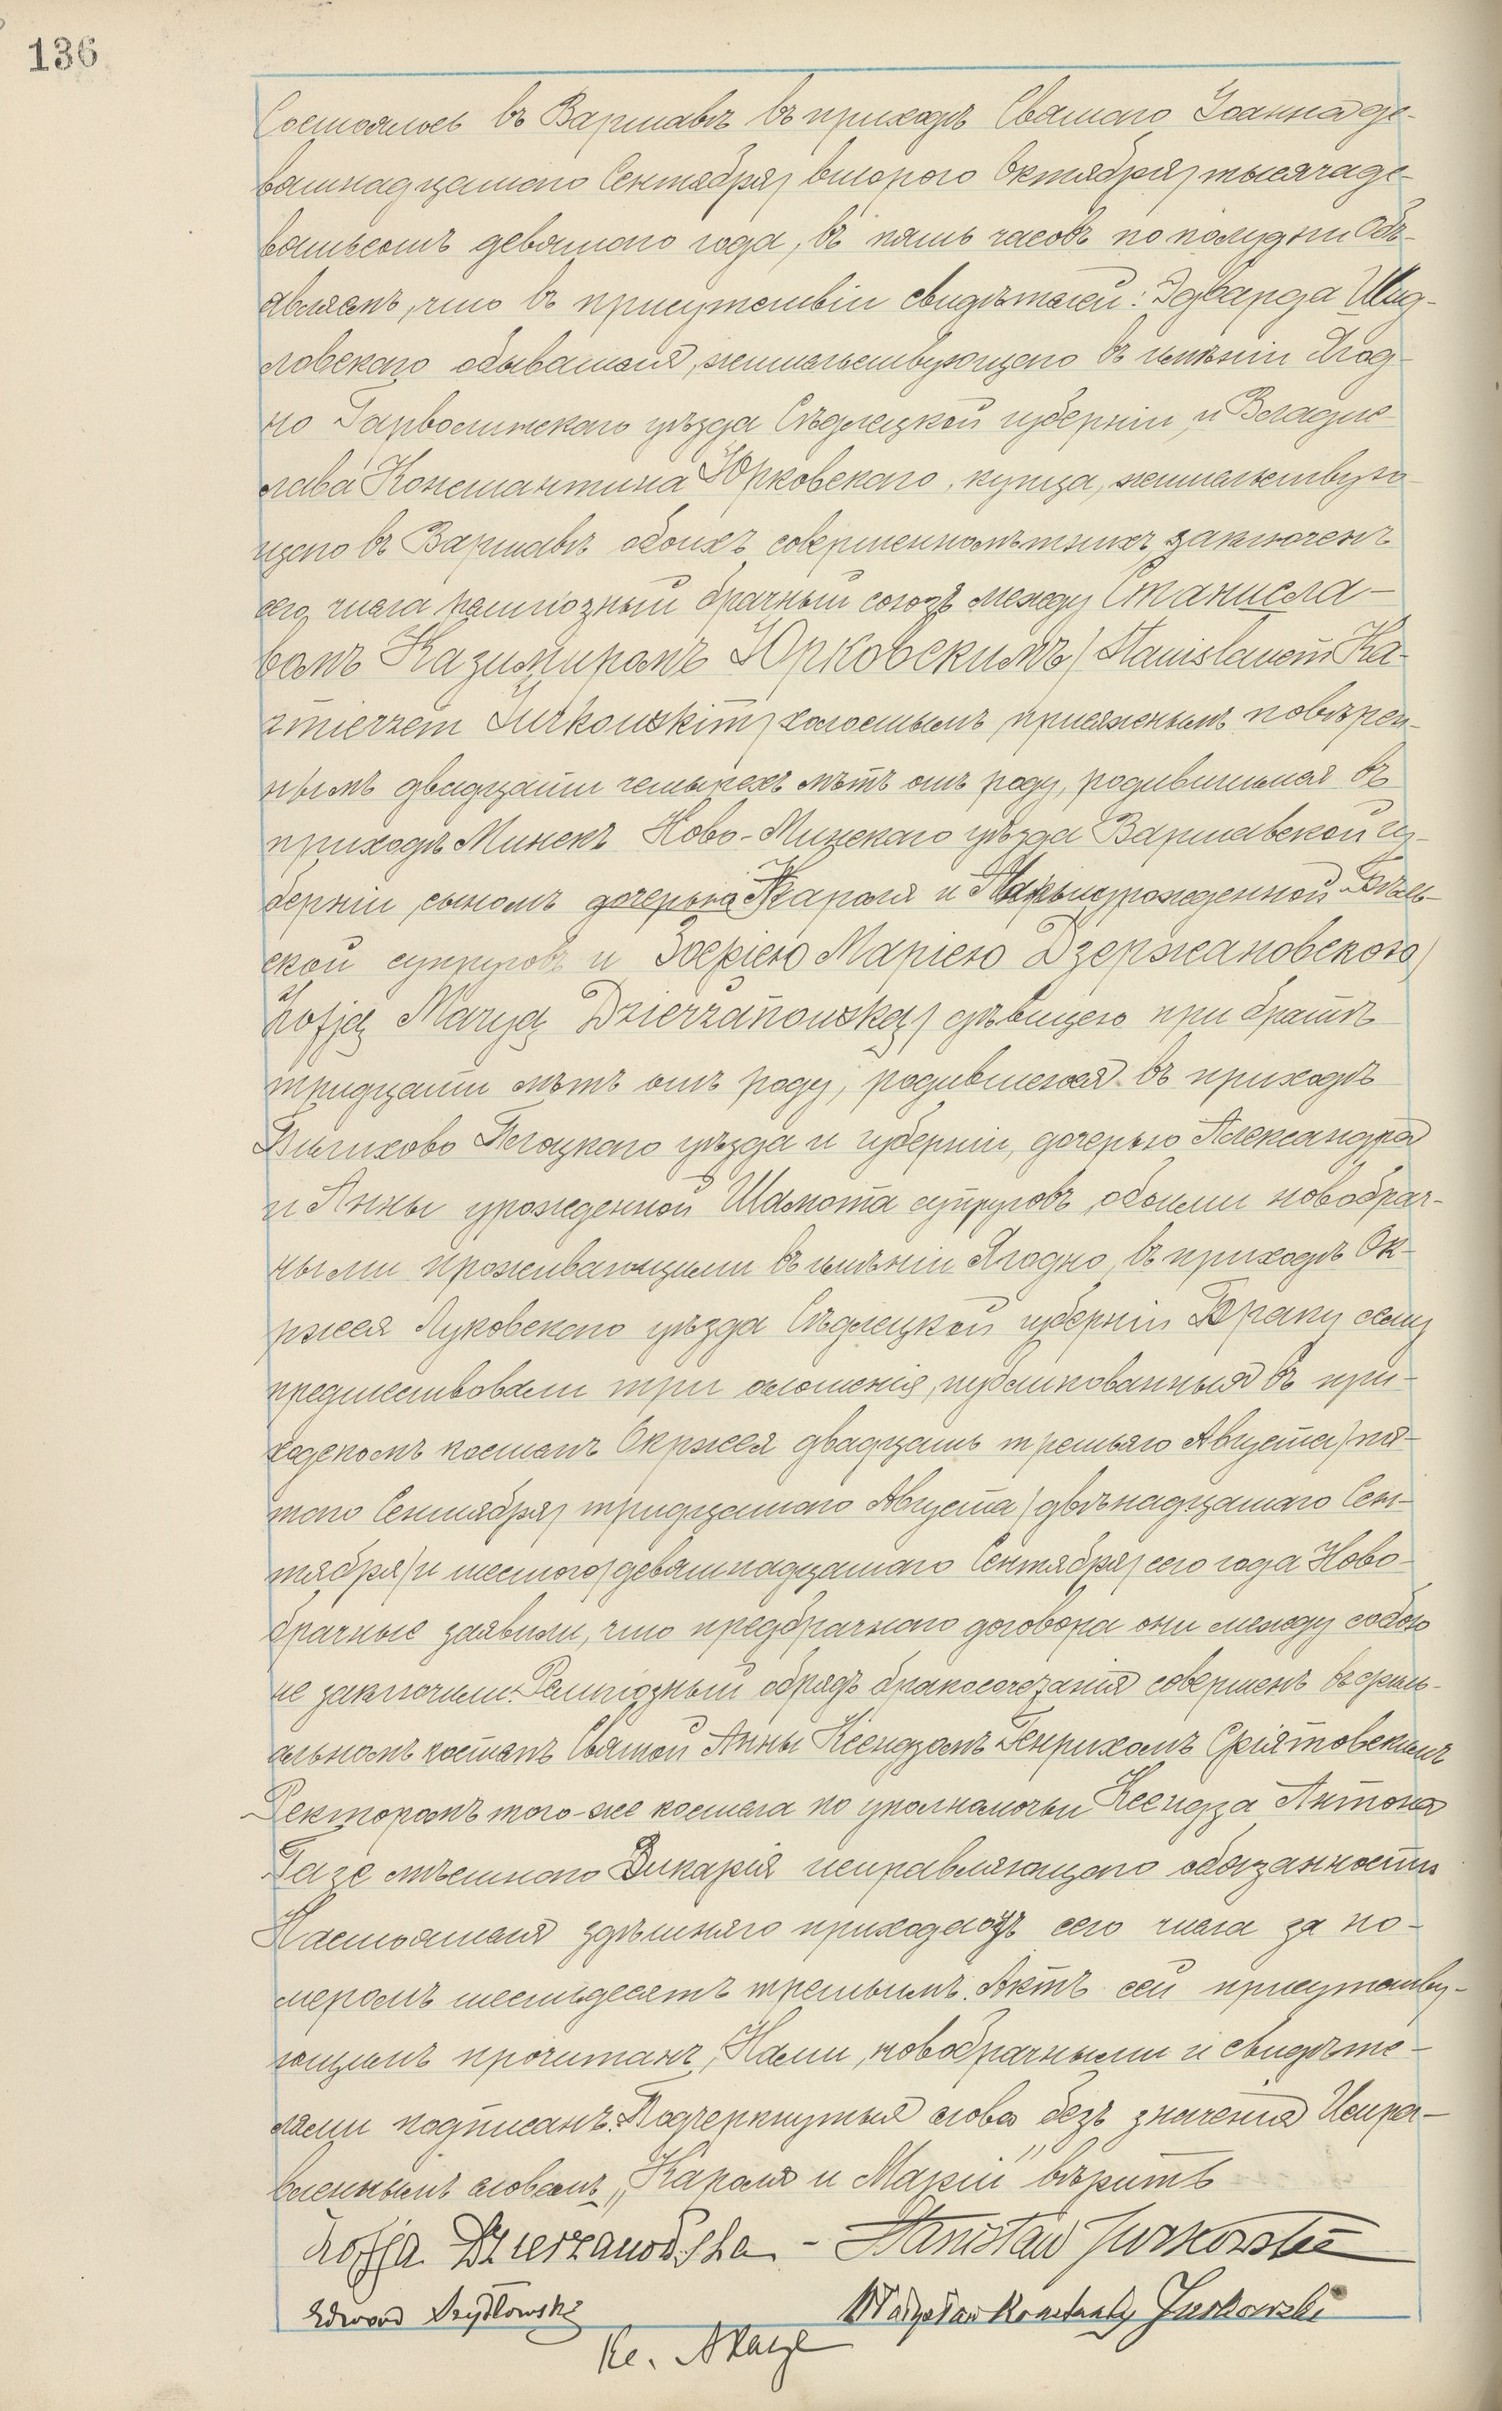 136
Состоялось въ Варшавѣ въ приходѣ Святаго Іоанна де-
вятнадцатаго Сентября / втораго Октября / тысяча де-
вятьсотъ девятаго года, въ пять часовъ по полудни Объ-
являемъ, что въ присутствіи свидѣтелей: Эдварда Шид-
ловскаго обывателя, жительствующаго въ имѣніи Ягод-
но Гарволинскаго уѣзда Сѣдлецкой губерніи, и Владис-
лава Константина Юрковскаго, купца, жительствую-
щаго въ Варшавѣ обоихъ совершеннолѣтнихъ, заключенъ
сего числа религіозный брачный союзъ между Станисла-
вомъ Казимиромъ Юрковскимъ / Stanisławem Ka-
zmierzem Jurkowskim / холостымъ, присяжнымъ повѣрен-
нымъ двадцати четырехъ лѣтъ отъ роду, родившимся въ
приходѣ Минскъ Ново-Минскаго уѣзда Варшавской гу-
берніи, сыномъ дочерью Кароля и Маріи урожденной Бѣль-
ской супруговъ и Зофіею Маріею Дзержановскою /
Zofją Maryą Dzierżanowską / дѣвицею при братѣ
тридцати лѣтъ отъ роду, родившеюся въ приходѣ
Плоцкаго уѣзда и губерніи, дочерью Александра
и Анны урожденной Шамота супруговъ, обоими новобрач-
ными проживающими въ имѣніи Ягодно, въ приходѣ Ок-
ржея Луковскаго уѣзда Сѣдлецкой губерніи Браку сему
предшествовали три оглошенія, публикованныя въ при-
ходскомъ костелѣ Окржея двадцать третьяго Августа / пя-
таго Сентября / тридцатаго Августа / двѣнадцатаго Сен-
тября / и шестого / девятнадцатаго Сентября / сего года Ново-
брачные заявили, что предбрачнаго договора они между собою
не заключили. Религіозный обрядъ бракосочетанія совершенъ въ филі-
альномъ костелѣ Святой Анны Ксендзомъ Генрихомъ
Ректоромъ того-же костела по уполномочьи Ксендза Антона
Гаце мѣстнаго Викарія исправляющаго обязанности
Настоятеля здѣшняго прихода отъ сего числа за но-
меромъ шестьдесятъ третьимъ. Актъ сей присутству-
ющимъ прочитанъ, Нами, новобрачными и свидѣте-
лями подписанъ. Подчеркнутыя слова безъ значенія Испра-
вленнымъ словамъ „Кароля и Маріи" вѣрить
Zofja Dzierżanowska – Stanisław Jurkowski
Edward Szydłowski Władysław Konstanty Jurkowski
Ks. A Hacze